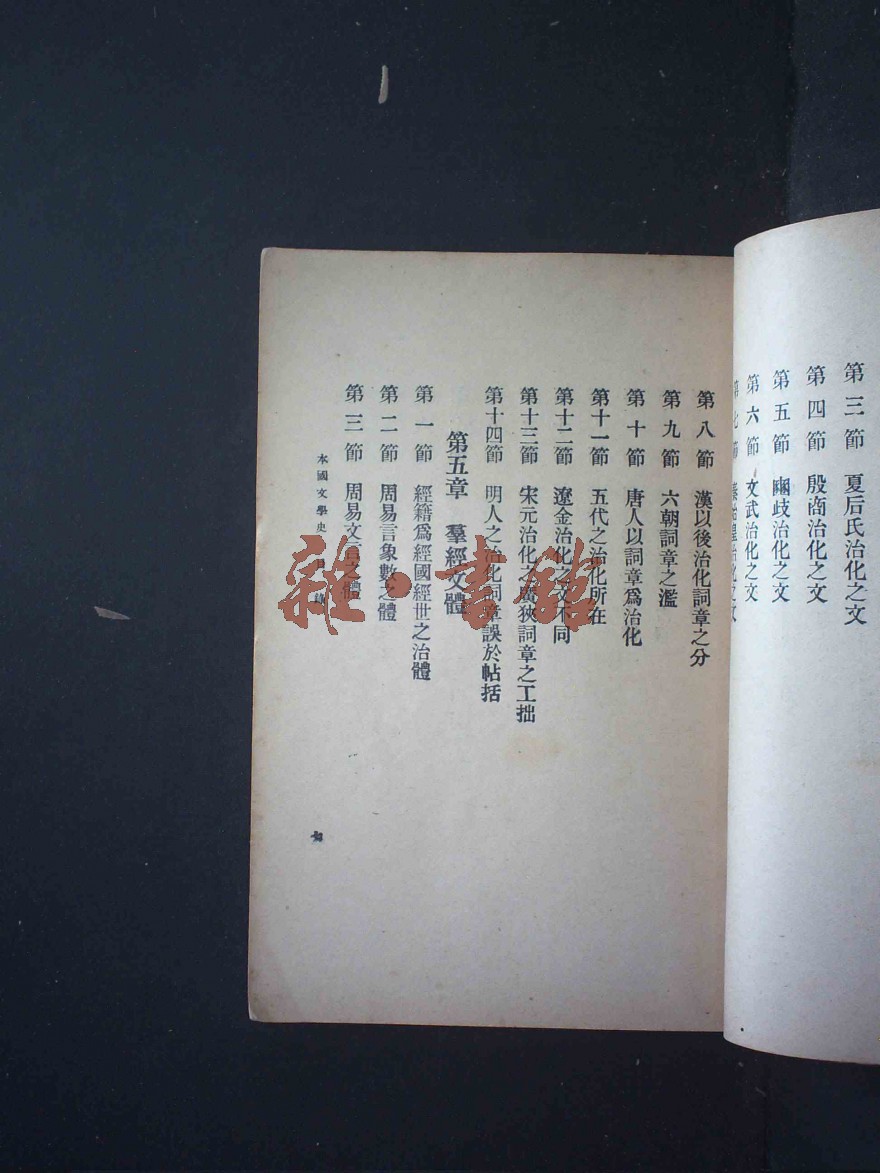 第三節 夏后氏治化之文
第四節 殷商治化之文
第五節 豳歧治化之文
第六節 文武治化之文
第七節 秦始皇治化之文
第八節 漢以後治化詞章之分
第九節 六朝詞章之濫
第十節 唐人以詞章爲治化
第十一節 五代之治化所在
第十二節 遼金治化之文不同
第十三節 宋元治化之廣狹詞章之工拙
第十四節 明人之治化詞章誤於帖括
第五章 羣經文體
第一節 經籍爲經國經世之治體
第二節 周易言象數之體
第三節 周易文言之體
本國文學史 目錄
七
雜·書館